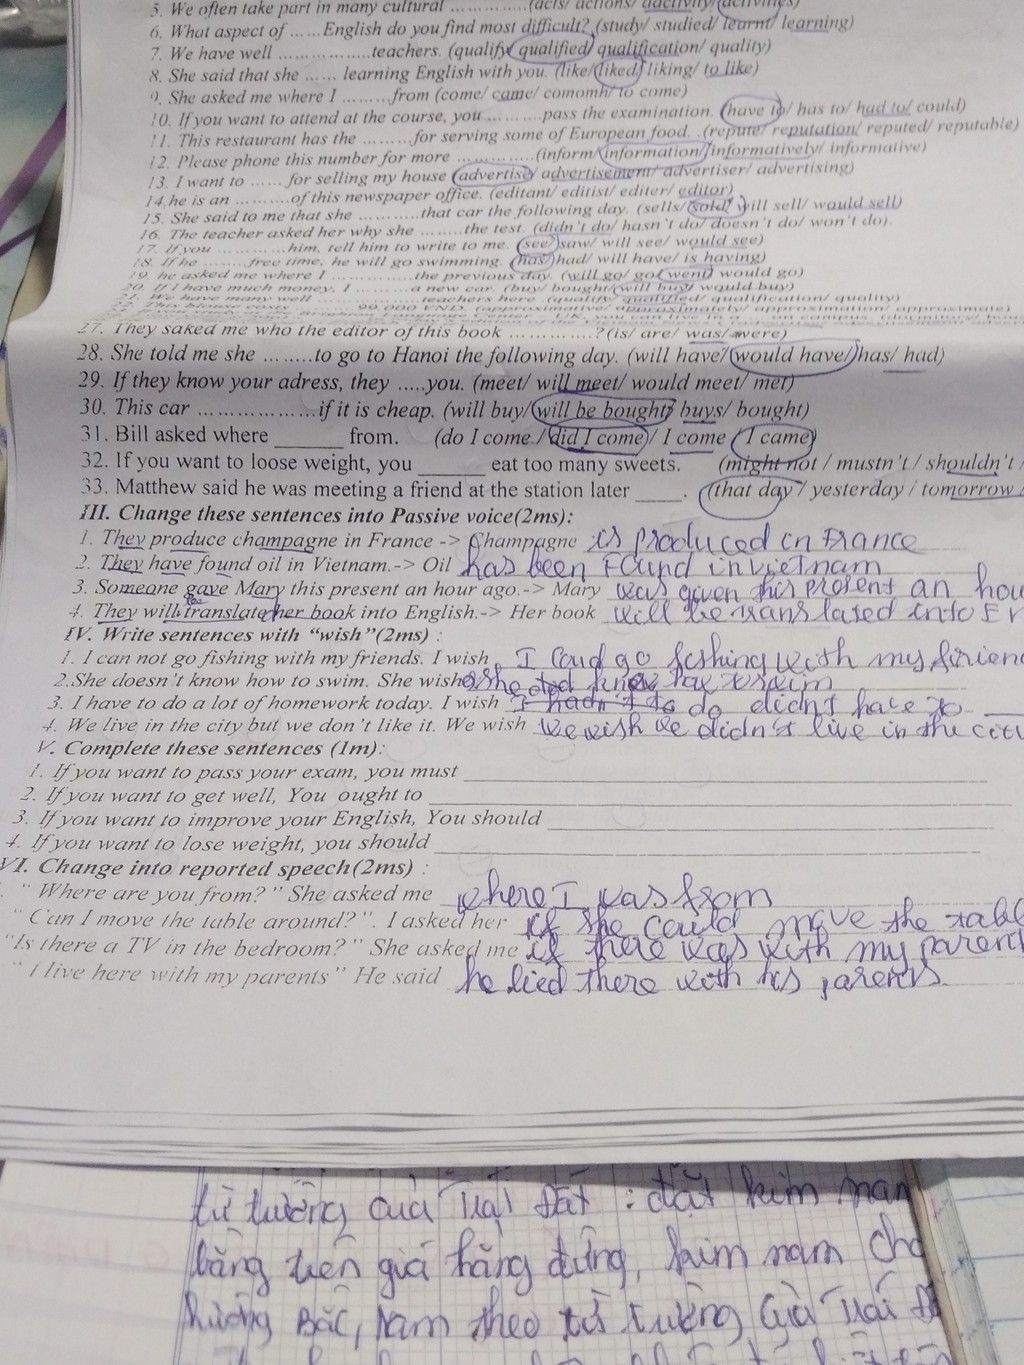 5. We often take part in many cultural ............(acts/ actions/ activity/ activities)
6. What aspect of ......English do you find most difficult? (study/ studied/ learnt/ learning)
7. We have well ...............teachers. (qualify/ qualified/ qualification/ quality)
8. She said that she ...... learning English with you. (like/ liked/ liking/ to like)
9. She asked me where I .........from (come/ came/ comomh/ to come)
10. If you want to attend at the course, you ..........pass the examination. (have to/ has to/ had to/ could)
11. This restaurant has the .........for serving some of European food. .(repute/ reputation/ reputed/ reputable)
12. Please phone this number for more ..............(inform/ information/ informatively/ informative)
13. I want to ......for selling my house (advertise/ advertisement/ advertiser/ advertising)
14.he is an .........of this newspaper office. (editant/ editist/ editer/ editor)
15. She said to me that she ...........that car the following day. (sells/ sold/ will sell/ would sell)
16. The teacher asked her why she .......the test. (didn't do/ hasn't do/ doesn't do/ won't do).
17. If you ...........him, tell him to write to me. (see/ saw/ will see/ would see)
18. If he ........free time, he will go swimming. (has/ had/ will have/ is having)
19. he asked me where I .............the previous day. (will go/ go/ went/ would go)
20. If I have much money, I ........a new car. (buy/ bought/ will buy/ would buy)
21. We have many well ...............teachers here .(qualify/ qualified/ qualification/ quality)
22. This house costs ............99 000 VND. (approximative/ approximately/ approximation/ approximate)
27. They saked me who the editor of this book ..............? (is/ are/ was/ were)
28. She told me she ........to go to Hanoi the following day. (will have/ would have/ has/ had)
29. If they know your adress, they .....you. (meet/ will meet/ would meet/ met)
30. This car ....................if it is cheap. (will buy/ will be bought/ buys/ bought)
31. Bill asked where ______ from. (do I come / did I come / I come / I came)
32. If you want to loose weight, you ______ eat too many sweets. (might not / mustn't / shouldn't /
33. Matthew said he was meeting a friend at the station later ____. (that day / yesterday / tomorrow /
III. Change these sentences into Passive voice(2ms):
1. They produce champagne in France -> Champagne is produced in France
2. They have found oil in Vietnam.-> Oil has been Found in vietnam
3. Someone gave Mary this present an hour ago.-> Mary was given this present an hou
4. They will translate her book into English.-> Her book will be translated into
IV. Write sentences with "wish"(2ms) :
1. I can not go fishing with my friends. I wish I coud go fishing with my
2.She doesn't know how to swim. She wishes she
3. I have to do a lot of homework today. I wish I hadn't to do didn't have to
4. We live in the city but we don't like it. We wish we wish we didn't live in the
V. Complete these sentences (1m):
1. If you want to pass your exam, you must
2. If you want to get well, You ought to
3. If you want to improve your English, You should
4. If you want to lose weight, you should
VI. Change into reported speech(2ms) :
" Where are you from?" She asked me where I was from
" Can I move the table around?". I asked her if she could move the tabl
"Is there a TV in the bedroom?" She asked me if there was with my parent
" I live here with my parents" He said he lied there with his parents.
từ trường của Trái Đất : đặt kim nam
bằng trên giá thẳng đứng, kim nam
hướng Bắc, Nam theo từ trường của Trái